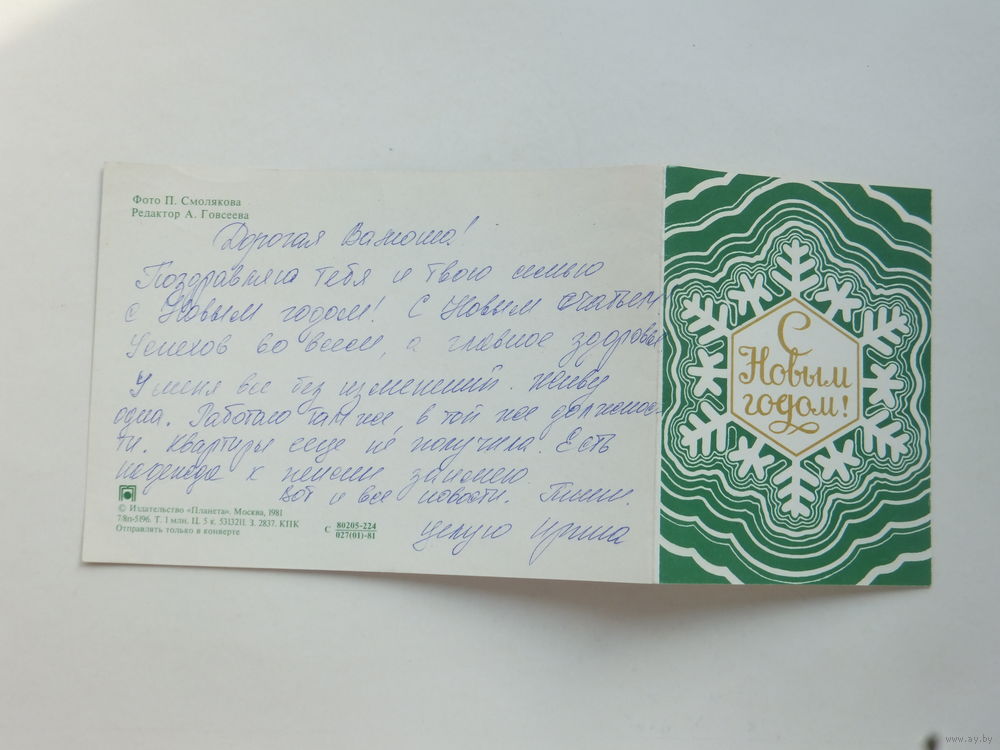 Фото П. Смолякова
Редактор А. Говсеева
Дорогая
Поздравляю тебя и твою семью
с Новым годом! С Новым счастьем
Успехов во всем, а главное здоровья
У меня все без изменений. Живу
одна. Работаю там же, в той же должнос-
ти. Квартиры еще не получила. Есть
надежда к пенсии
Вот и все новости. Пиши.
Целую Ирина
© Издательство «Планета». Москва, 1981
7/8п-5196. Т. 1 млн. Ц. 5 к. 5313211. З. 2837. КПК
Отправлять только в конверте
С 80205-224
027(01)-81
С
Новым
годом!
www.ay.by